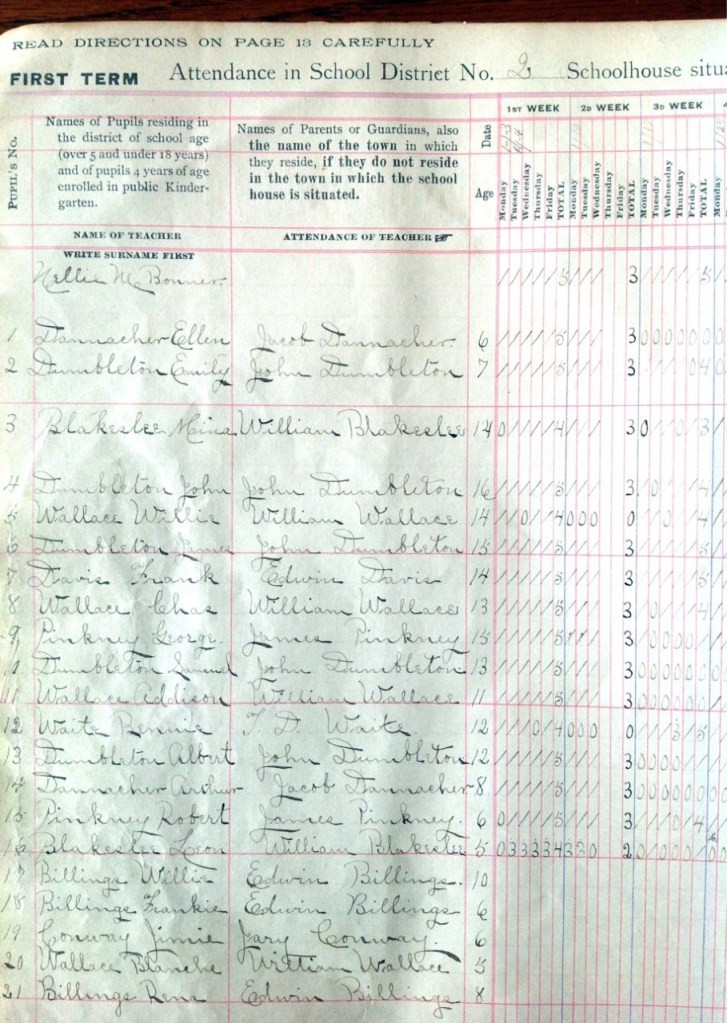 READ DIRECTIONS ON PAGE 13 CAREFULLY
FIRST TERM Attendance in School District No. 2 Schoolhouse situa
PUPIL'S No.
Names of Pupils residing in
the district of school age
(over 5 and under 18 years)
and of pupils 4 years of age
enrolled in public Kinder-
garten.
Names of Parents or Guardians, also
the name of the town in which
they reside, if they do not reside
in the town in which the school
house is situated.
Date
Age
1ST WEEK 2D WEEK 3D WEEK
Monday Tuesday Wednesday Thursday Friday TOTAL Monday Tuesday Wednesday Thursday Friday TOTAL Monday Tuesday Wednesday Thursday Friday TOTAL Monday
NAME OF TEACHER ATTENDANCE OF TEACHER ☞
WRITE SURNAME FIRST
Nellie M. Bonner. / / / / / 5 / / / 3 / / / / / 5 /
1 Dannacher Ellen Jacob Dannacher. 6 / / / / / 5 / / / 3 0 0 0 0 0 0 0
2 Dumbleton Emily John Dumbleton 7 / / / / / 5 / / / 3 / / / / 0 4 0
3 Blakeslee Mina William Blakeslee 14 0 / / / / 4 / / / 3 0 / / 0 / 3 /
4 Dumbleton John John Dumbleton 16 / / / / / 5 / / / 3 / 0 / / / 4 /
5 Wallace Willie William Wallace 14 / / 0 / / 4 0 0 0 0 / / 0 / / 4
6 Dumbleton John Dumbleton 15 / / / / / 5 / / / 3 / / / / / 5
7 Davis Frank Edwin Davis 14 / / / / / 5 / / / 3 / / / / / 5
8 Wallace Chas William Wallace 13 / / / / / 5 / / / 3 / 0 / / / 4 /
9 Pinkney George. James Pinkney 15 / / / / / 5 3 / 0 0 0 0
Dumbleton Samuel John Dumbleton 13 / / / / / 5 / / / 3 0 0 0 0 0 0 0
11 Wallace Addison William Wallace 11 / / / / / 5 / / / 3 0 0 0 0 0 0
12 Waite Rennie T. D. Waite 12 / / / 0 / 4 0 0 0 0 / / /
13 Dumbleton Albert John Dumbleton 12 / / / / / 5 / / / 3 0 0 0 0
14 Dannacher Arthur Jacob Dannacher 8 / / / / / 5 / / / 3 0 0 0 0 0 0 0
15 Pinkney Robert James Pinkney. 6 0 / / / / 5 / / / 3 / / / 0 / 4
16 Blakeslee Leon William Blakeslee 5 0 3 3 3 3 4 3 3 0 2 0 / 0 / 0
17 Billings Willie Edwin Billings. 10
18 Billings Frankie Edwin Billings 6
19 Conway Jimie Conway. 6
20 Wallace Blanche William Wallace 5
21 Billings Rena Edwin Billings 8